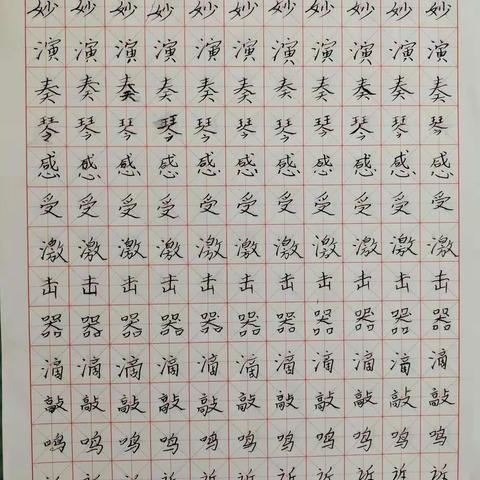 妙妙妙妙妙妙妙妙妙妙妙
演演演演演演演演演演演
奏奏奏奏奏奏奏奏奏奏奏
琴琴琴琴琴琴琴琴琴琴琴
感感感感感感感感感感感
受受受受受受受受受受受
激激激激激激激激激激激
击击击击击击击击击击击
器器器器器器器器器器器
滴滴滴滴滴滴滴滴滴滴滴
敲敲敲敲敲敲敲敲敲敲敲
鸣鸣鸣鸣鸣鸣鸣鸣鸣鸣鸣